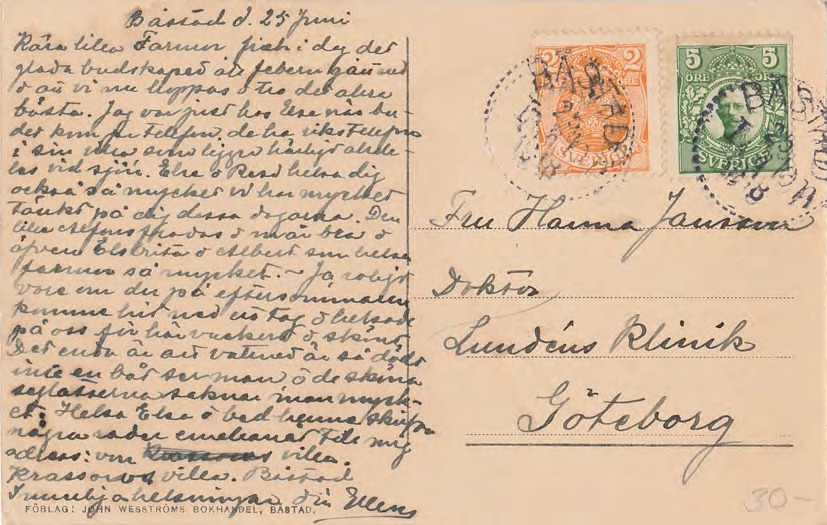 Båstad d. 25 Juni
Kära lilla Farmor fick i dag det
glada budskapet att febern gått ned
o att vi nu hoppas o tro det allra
bästa. Jag var just hos Else när bu-
det kom per telefon, de ha rikstelefon
i sin villa som ligger härligt aldel-
es vid sjön. Else o helsa dig
också så mycket vi har mycket
tänkt på dig dessa dagarna. Den
lilla o mår bra o
äfven Elsbrita o Albert som helsa
farmor så mycket. ~ Ja roligt
vore om du på eftersommaren
komme hit med ett tag o helsade
på oss för här vackert o skönt
Det enda är att vattnet är så dödt
inte en båt ser man o de sköna
seglatserna saknar man myck-
et. Helsa Else o bed henne skrifva
några rader emellanåt till mig
adress: von villa.
Krassows villa. Båstad
Innerliga helsningar din Ellen
FÖRLAG: JOHN WESSTRÖMS BOKHANDEL, BÅSTAD.
2 ÖRE SVERIGE
5 ÖRE ÖRE 5 SVERIGE
BÅSTAD
BÅSTAD
Fru Hanna Jansson
Doktor
Lundéns Klinik
Göteborg
30-